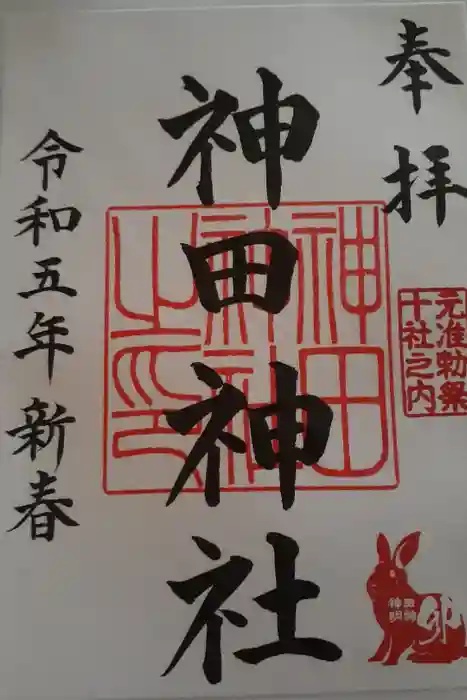 奉拝
元准勅祭
十社之内
卯
神田神社
神田
神社
之印
令和五年新春